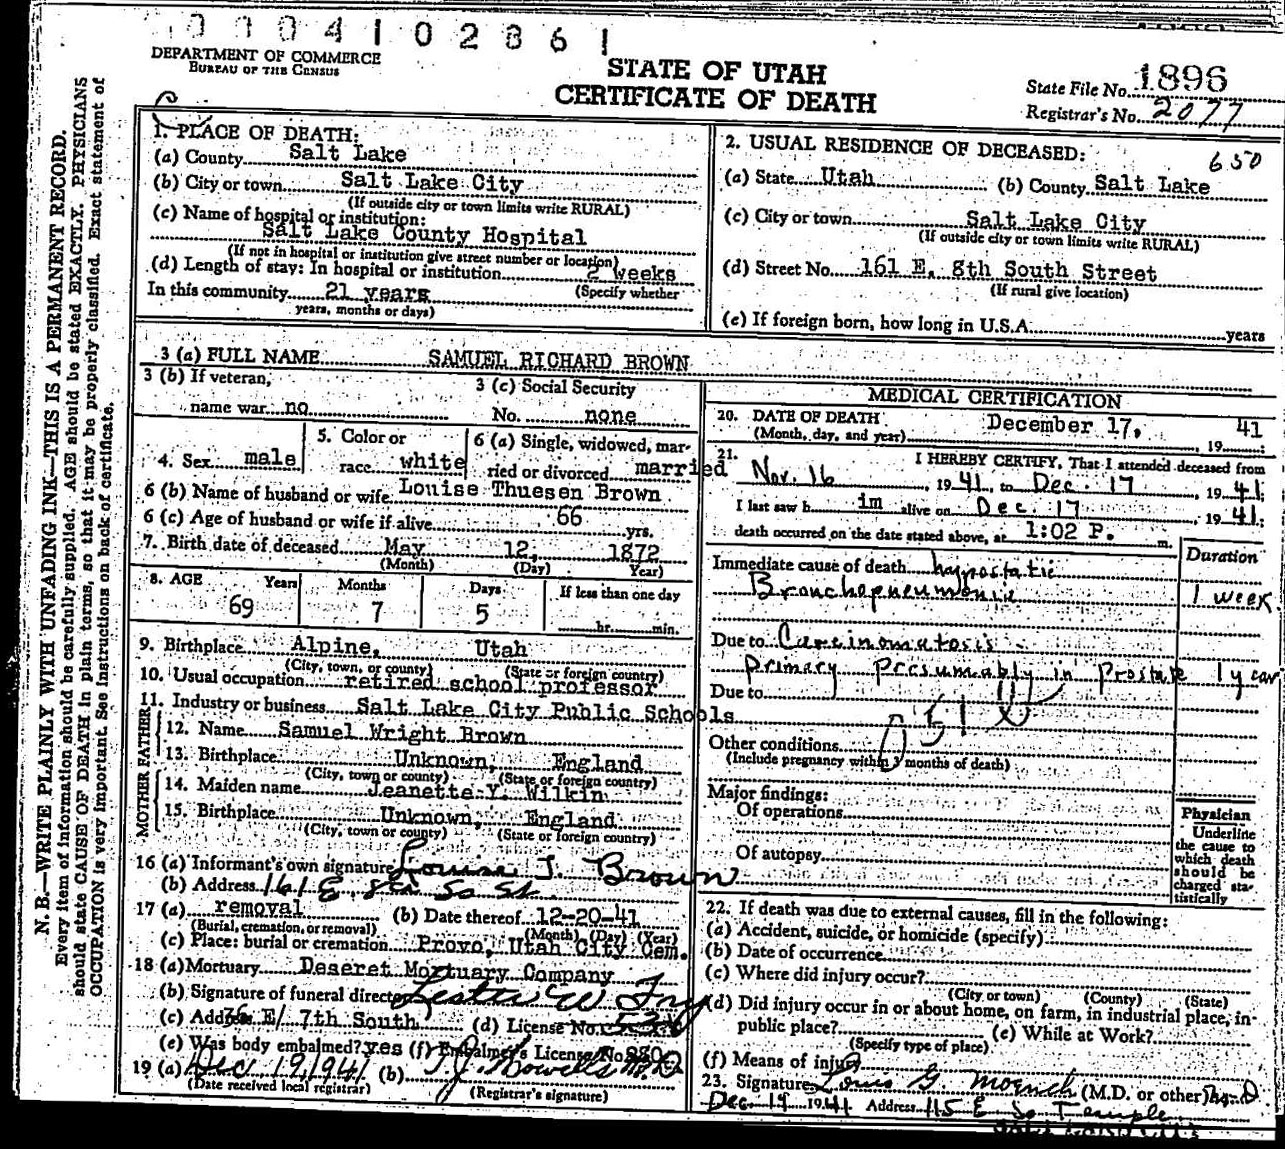 0 0 0 4 1 0 2 8 6 1
DEPARTMENT OF COMMERCE
BUREAU OF THE CENSUS
STATE OF UTAH
CERTIFICATE OF DEATH
State File No. 1896
Registrar's No. 2077
N. B.—WRITE PLAINLY WITH UNFADING INK—THIS IS A PERMANENT RECORD.
Every item of information should be carefully supplied. AGE should be stated EXACTLY. PHYSICIANS
should state CAUSE OF DEATH in plain terms, so that it may be properly classified. Exact statement of
OCCUPATION is very important. See instructions on back of certificate.
1. PLACE OF DEATH:
(a) County Salt Lake
(b) City or town Salt Lake City
(If outside city or town limits write RURAL)
(c) Name of hospital or institution:
Salt Lake County Hospital
(If not in hospital or institution give street number or location)
(d) Length of stay: In hospital or institution 2 weeks
(Specify whether
In this community 21 years
years, months or days)
2. USUAL RESIDENCE OF DECEASED: 650
(a) State Utah (b) County Salt Lake
(c) City or town Salt Lake City
(If outside city or town limits write RURAL)
(d) Street No. 161 E. 8th South Street
(If rural give location)
(e) If foreign born, how long in U.S.A. years
3 (a) FULL NAME SAMUEL RICHARD BROWN
3 (b) If veteran,
name war no
3 (c) Social Security
No. none
4. Sex male
5. Color or
race white
6 (a) Single, widowed, mar-
ried or divorced married
6 (b) Name of husband or wife Louise Thuesen Brown
6 (c) Age of husband or wife if alive 66 yrs.
7. Birth date of deceased May 12, 1872
(Month) (Day) Year)
8. AGE Years Months Days If less than one day
69 7 5 hr. min.
9. Birthplace Alpine, Utah
(City, town, or county) (State or foreign country)
10. Usual occupation retired school professor
11. Industry or business Salt Lake City Public Schools
FATHER
12. Name Samuel Wright Brown
13. Birthplace Unknown, England
(City, town or county) (State or foreign country)
MOTHER
14. Maiden name Jeanette Y. Wilkin
15. Birthplace Unknown, England
(City, town or county) (State or foreign country)
16 (a) Informant's own signature Louise T. Brown
(b) Address 161 E 8th So St.
17 (a) removal (b) Date thereof 12-20-41
(Burial, cremation, or removal) (Month) (Day) (Year)
(c) Place: burial or cremation Provo, Utah City Cem.
18 (a) Mortuary Deseret Mortuary Company
(b) Signature of funeral director Lester W Fry
(c) Address 36 E/ 7th South (d) License No. 536
(e) Was body embalmed? yes (f) Embalmer's License No.
19 (a) Dec 19, 1941 (b) T. J. Howells M.D.
(Date received local registrar) (Registrar's signature)
MEDICAL CERTIFICATION
20. DATE OF DEATH December 17, 19 41
(Month, day, and year)
21. I HEREBY CERTIFY, That I attended deceased from
Nov. 16, 19 41, to Dec. 17, 19 41;
I last saw h im alive on Dec. 17 19 41;
death occurred on the date stated above, at 1:02 P. m.
Duration
Immediate cause of death hypostatic
Bronchopneumonia 1 week
Due to Carcinomatosis
Primary presumably in Prostate 1 year
Due to
051
Other conditions
(Include pregnancy within 3 months of death)
Major findings:
Of operations
Of autopsy
Physician
Underline
the cause to
which death
should be
charged sta-
tistically
22. If death was due to external causes, fill in the following:
(a) Accident, suicide, or homicide (specify)
(b) Date of occurrence
(c) Where did injury occur?
(City or town) (County) (State)
(d) Did injury occur in or about home, on farm, in industrial place, in-
public place? (e) While at Work?
(Specify type of place)
(f) Means of injury
23. Signature Louis G. Moench (M.D. or other) M.D.
Dec. 19 1941 Address 115 E So Temple